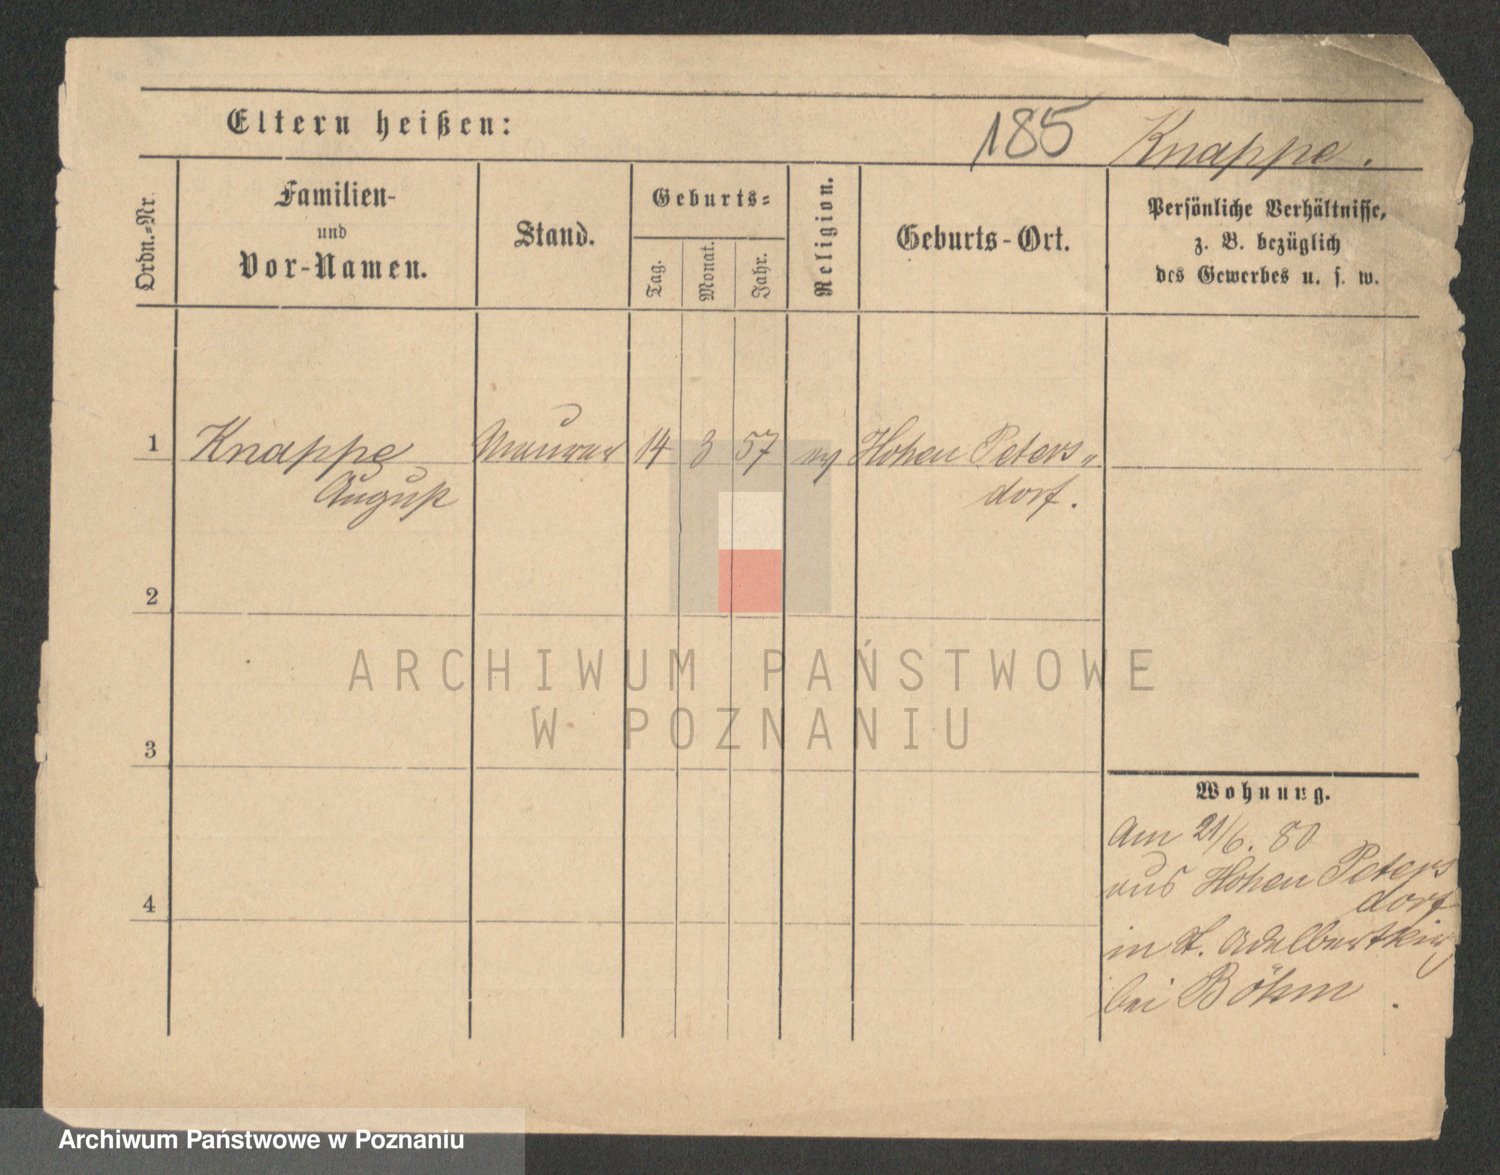 Eltern heißen:
185 Knappe.
Ordn.-Nr.
Familien-
und
Vor-Namen.
Stand.
Geburts-
Tag.
Monat.
Jahr.
Religion.
Geburts-Ort.
Persönliche Verhältnisse,
z. B. bezüglich
des Gewerbes u. s. w.
1 Knappe Maurer 14 3 57 ev Hohen Peters„
August dorf.
2
3
4
Wohnung.
Am 21/6. 80
aus Hohen Peters
dorf
in St. Adalbertkir
bei Böhm.
ARCHIWUM PAŃSTWOWE
W POZNANIU
Archiwum Państwowe w Poznaniu